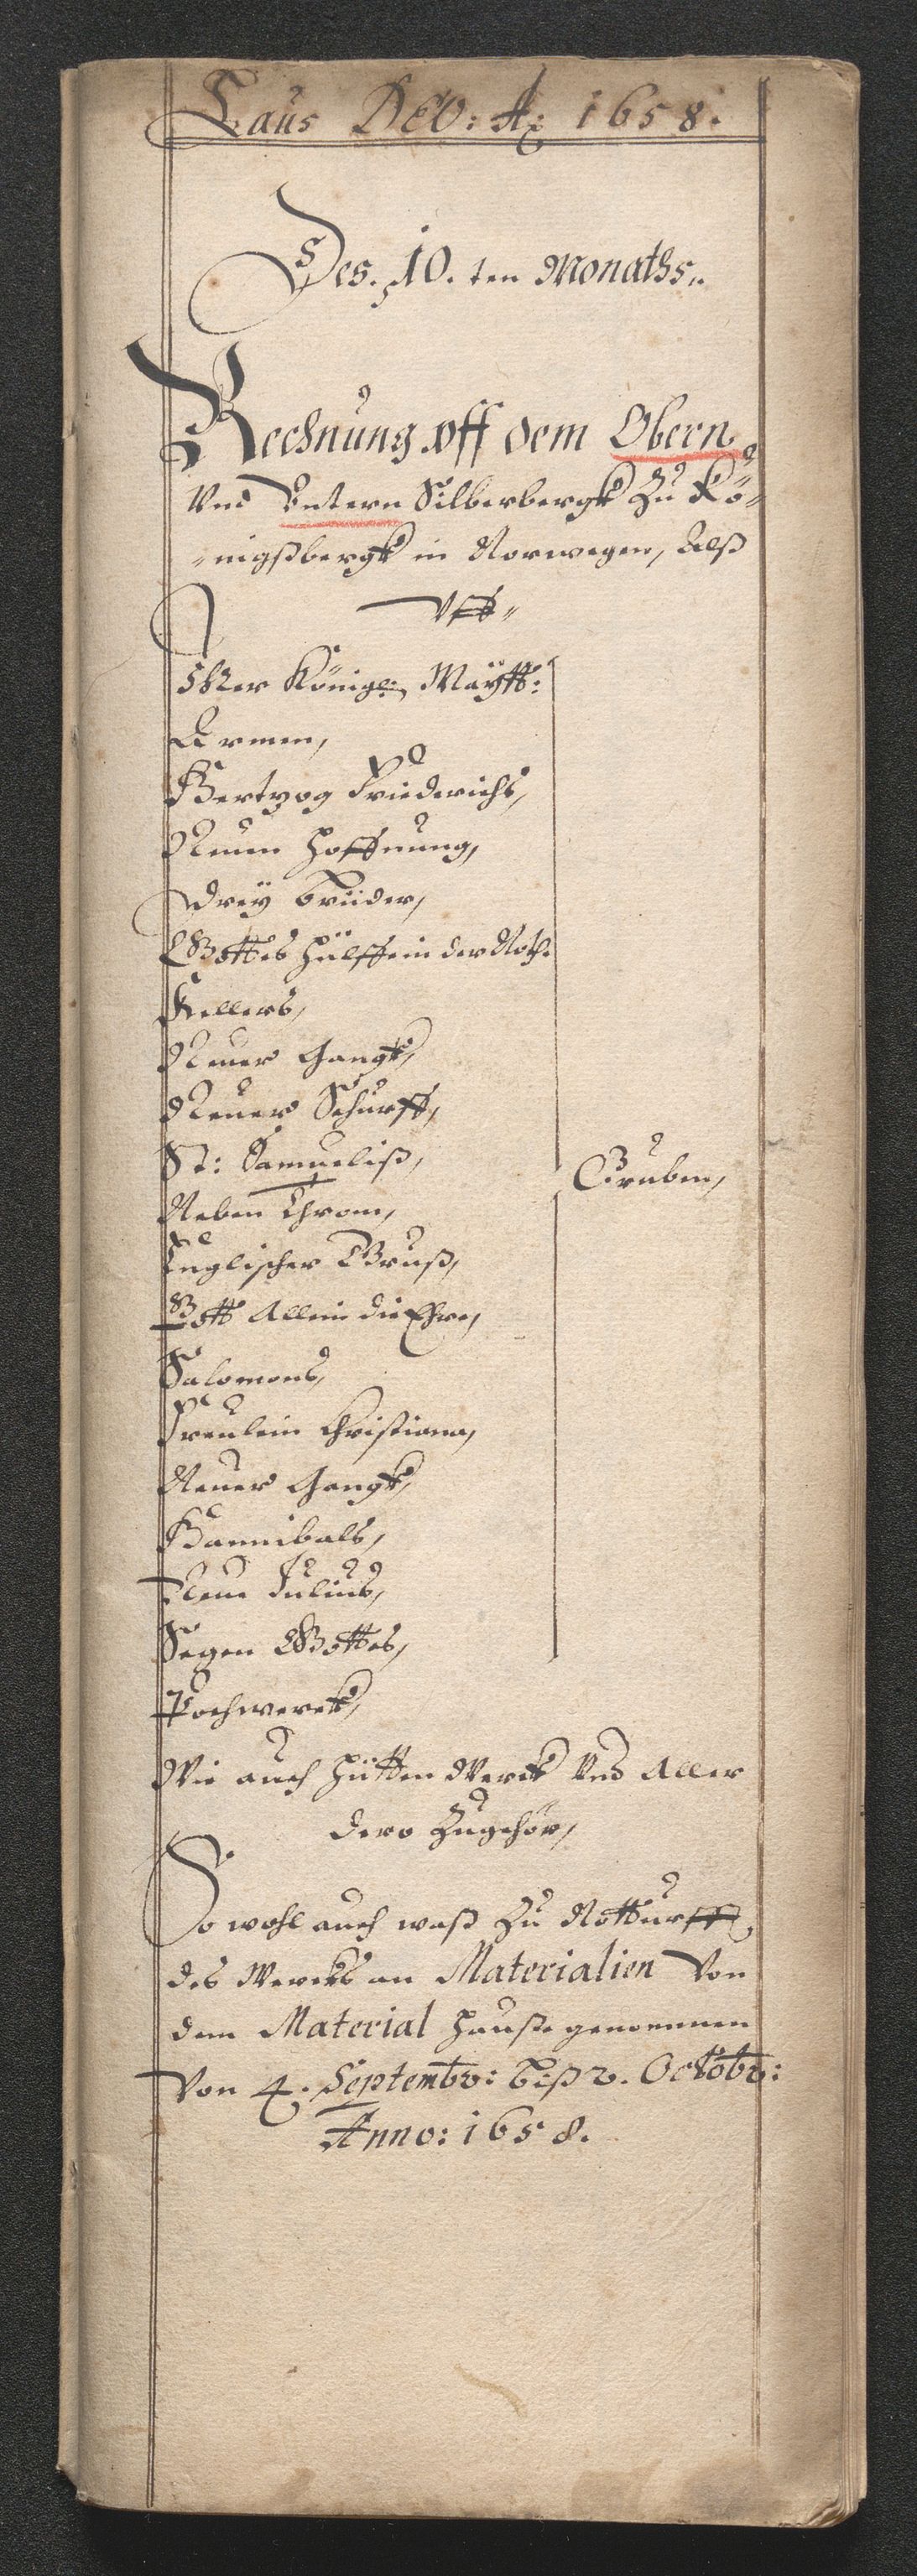 Laus DEO: Aō 1658.
Des. 10. ten Monaths.
Rechnung vff dem Obern
Vnd Vntern Silberbergk Zu Kö-
-nigßbergk in Norwegen, Alß
Vff
Ihrer Königl: Maÿtt:
Armen,
Hertzog Friederichs,
Neuen Hoffnung,
Dreÿ Brüder,
Gottes Hülffe in der Noth.
Kellers,
Neuer Gangk,
Neuer Schurff,
St: Samueliß,
Neben Throm,
Gruben,
Englischer Gruß,
Gott Allein die Ehre,
Salomons,
Freulein Christiana,
Neuer Gangk,
Hannibals,
Neue Julius,
Segen Gottes,
Pochwerck,
Wie auch Hütten Werck Vnd Aller
dero Zugehör,
So wohl auch waß Zu Notturfft
des Wercks an Materialien Von
dem Material Hauße genommen
Von 4. Septembr: biß 2. Octobr:
Anno: 1658.